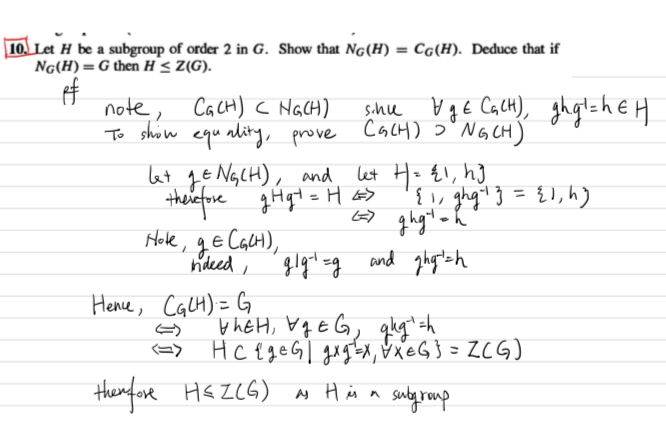 10. Let H be a subgroup of order 2 in G. Show that N_G(H) = C_G(H). Deduce that if
N_G(H) = G then H ≤ Z(G).
pf
note, C_G(H) ⊂ N_G(H) since ∀ g ∈ C_G(H), ghg⁻¹=h ∈ H
To show equality, prove C_G(H) ⊃ N_G(H)
let g ∈ N_G(H), and let H = {1, h}
therefore gHg⁻¹ = H ⟺ {1, ghg⁻¹} = {1, h}
⟺ ghg⁻¹ = h
Note, g ∈ C_G(H),
indeed, g1g⁻¹ = g and ghg⁻¹=h
Hence, C_G(H) = G
⟺ ∀ h∈H, ∀ g ∈ G, ghg⁻¹=h
⟺ H ⊂ {g∈G | gxg⁻¹=x, ∀x∈G} = Z(G)
therefore H ≤ Z(G) as H is a subgroup